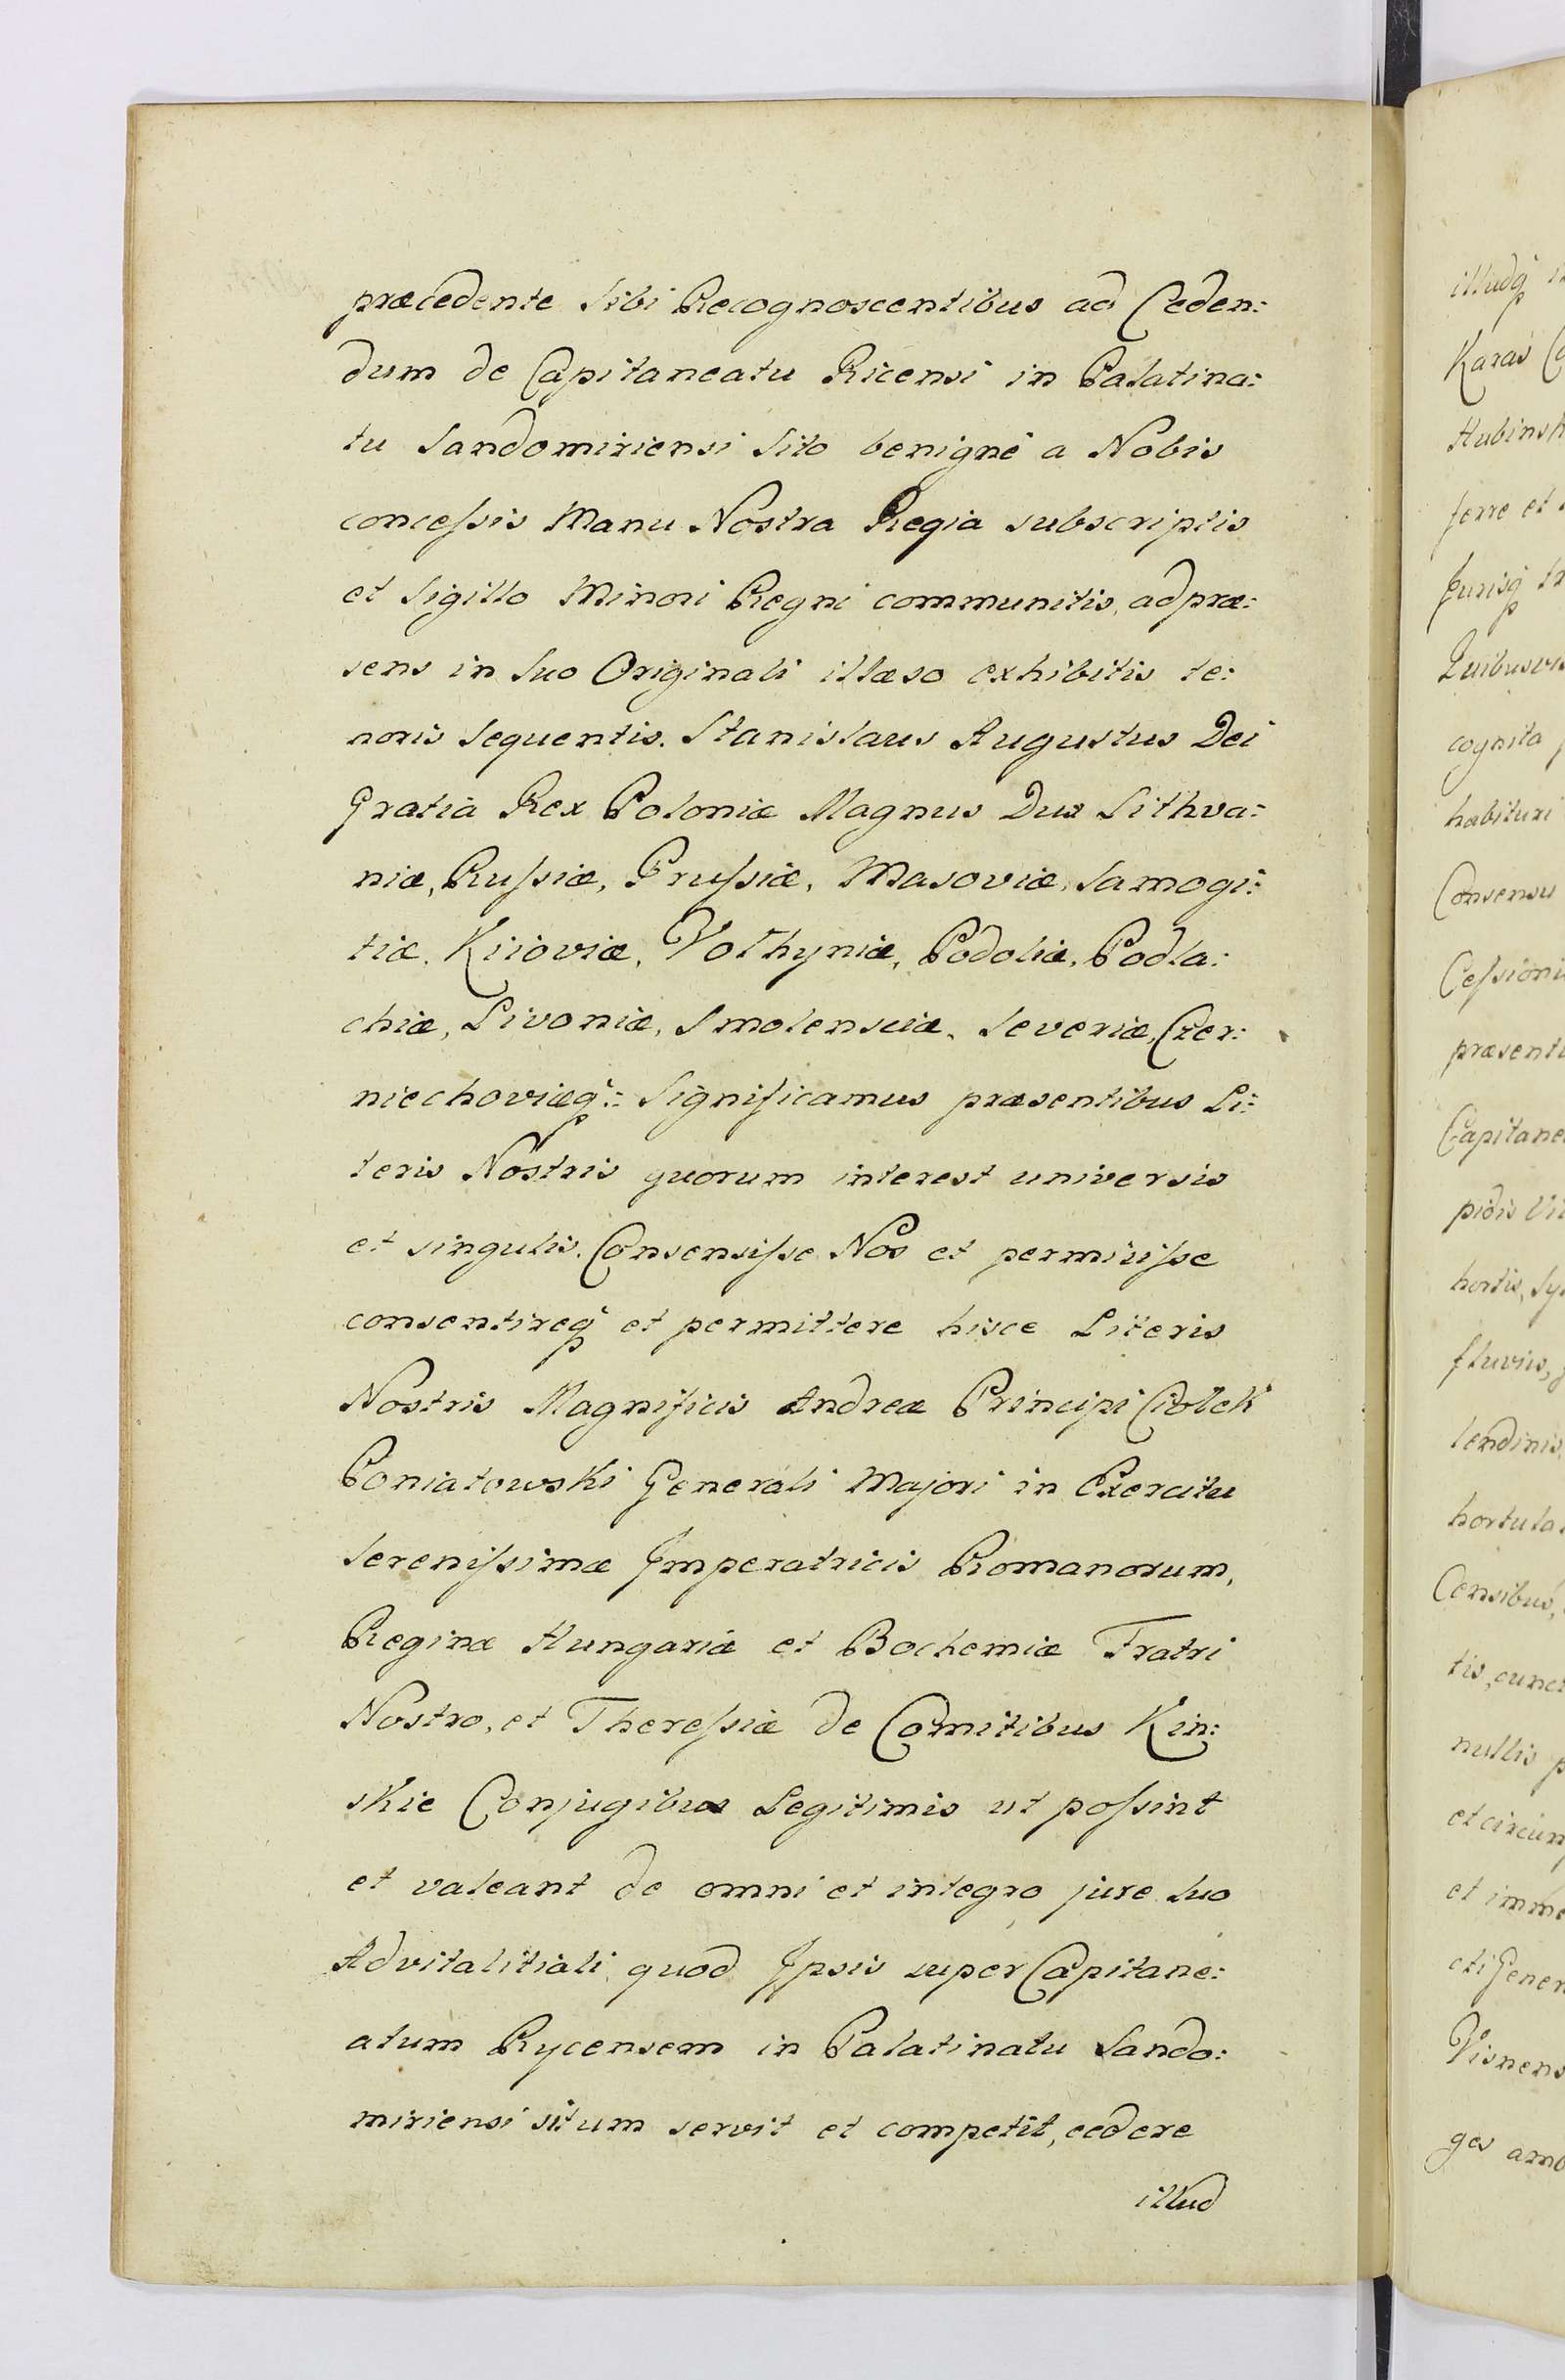 præcedente Sibi Recognoscentibus ad Ceden:
dum de Capitaneatu Ricensi in Palatina:
tu Sandomiriensi Sito benignè a Nobis
concessis Manu Nostra Regia subscriptis
et Sigillo Minori Regni communitis, ad præ:
sens in Suo Originali illæso exhibitis te:
noris Sequentis. Stanislaus Augustus Dei
Gratia Rex Poloniæ Magnus Dux Lithva:
niæ, Russiæ, Prussiæ, Masoviæ, Samogi:
tiæ, Kiioviæ, Volhyniæ, Podoliæ, Podla:
chiæ, Livoniæ, Smolensciæ, Severiæ, Czer:
niechoviæq:: Significamus præsentibus Li:
teris Nostris quorum interest universis
et singulis. Consensisse Nos et permisisse
consentireq et permittere hisce Literis
Nostris Magnificis Andreæ Principi Ciołek
Poniatowski Generali Majori in Exercitu
Serenissimæ Imperatricis Romanorum,
Reginæ Hungariæ et Bochemiæ Fratri
Nostro, et Theressiæ de Comitibus Kin:
skie Conjugibus Legitimis ut possint
et valeant de omni et integro jure Suo
Advitalitiali, quod Ipsis super Capitane:
atum Rycensem in Palatinatu Sando:
miriensi situm servit et competit, cedere
illud
illudq
Karas
ferre et
Jurisq
cognita
habituri
Consensu
hortis,
fluviis,
Censibus,
nullis
et